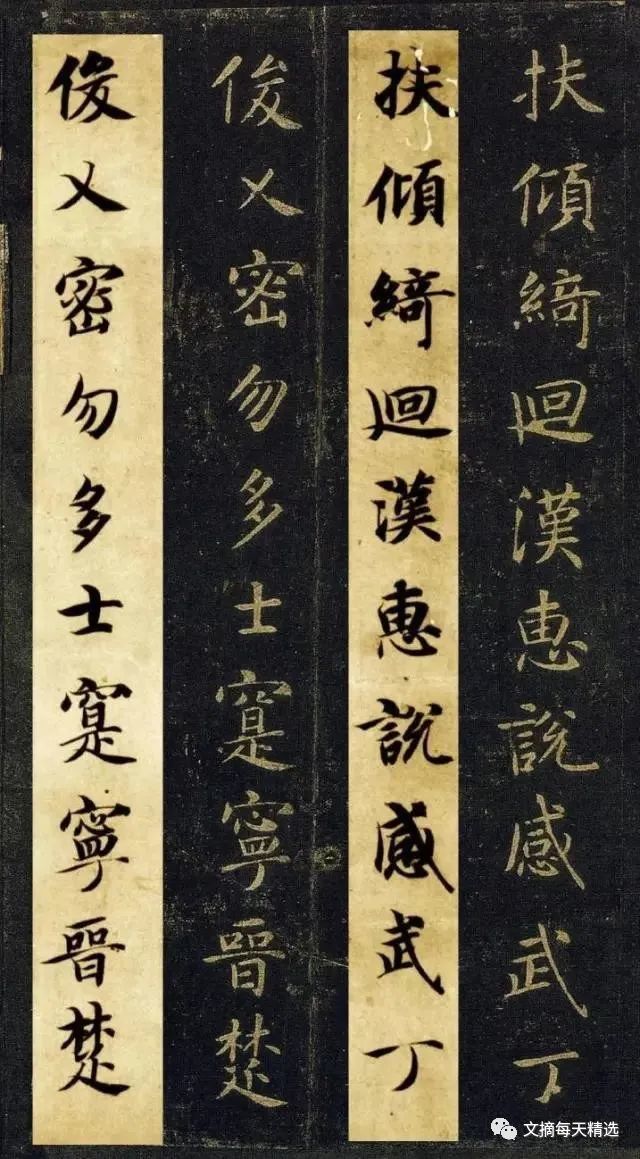 扶傾綺迴漢惠說感武丁
扶傾綺迴漢惠說感武丁
俊乂密勿多士寔寧晉楚
俊乂密勿多士寔寧晉楚
文摘每天精选